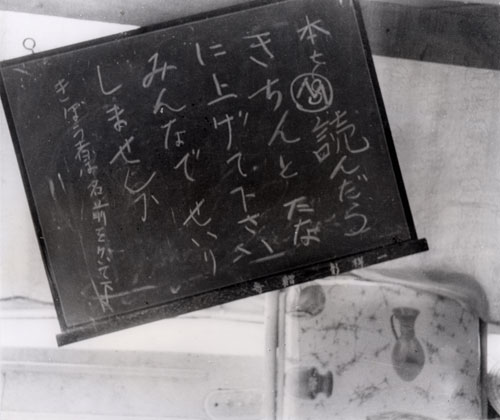 本を読んだら
きちんとたな
に上げて下さい
みんなで せいり
しませんか
きぼう者は名前をかいて下さい